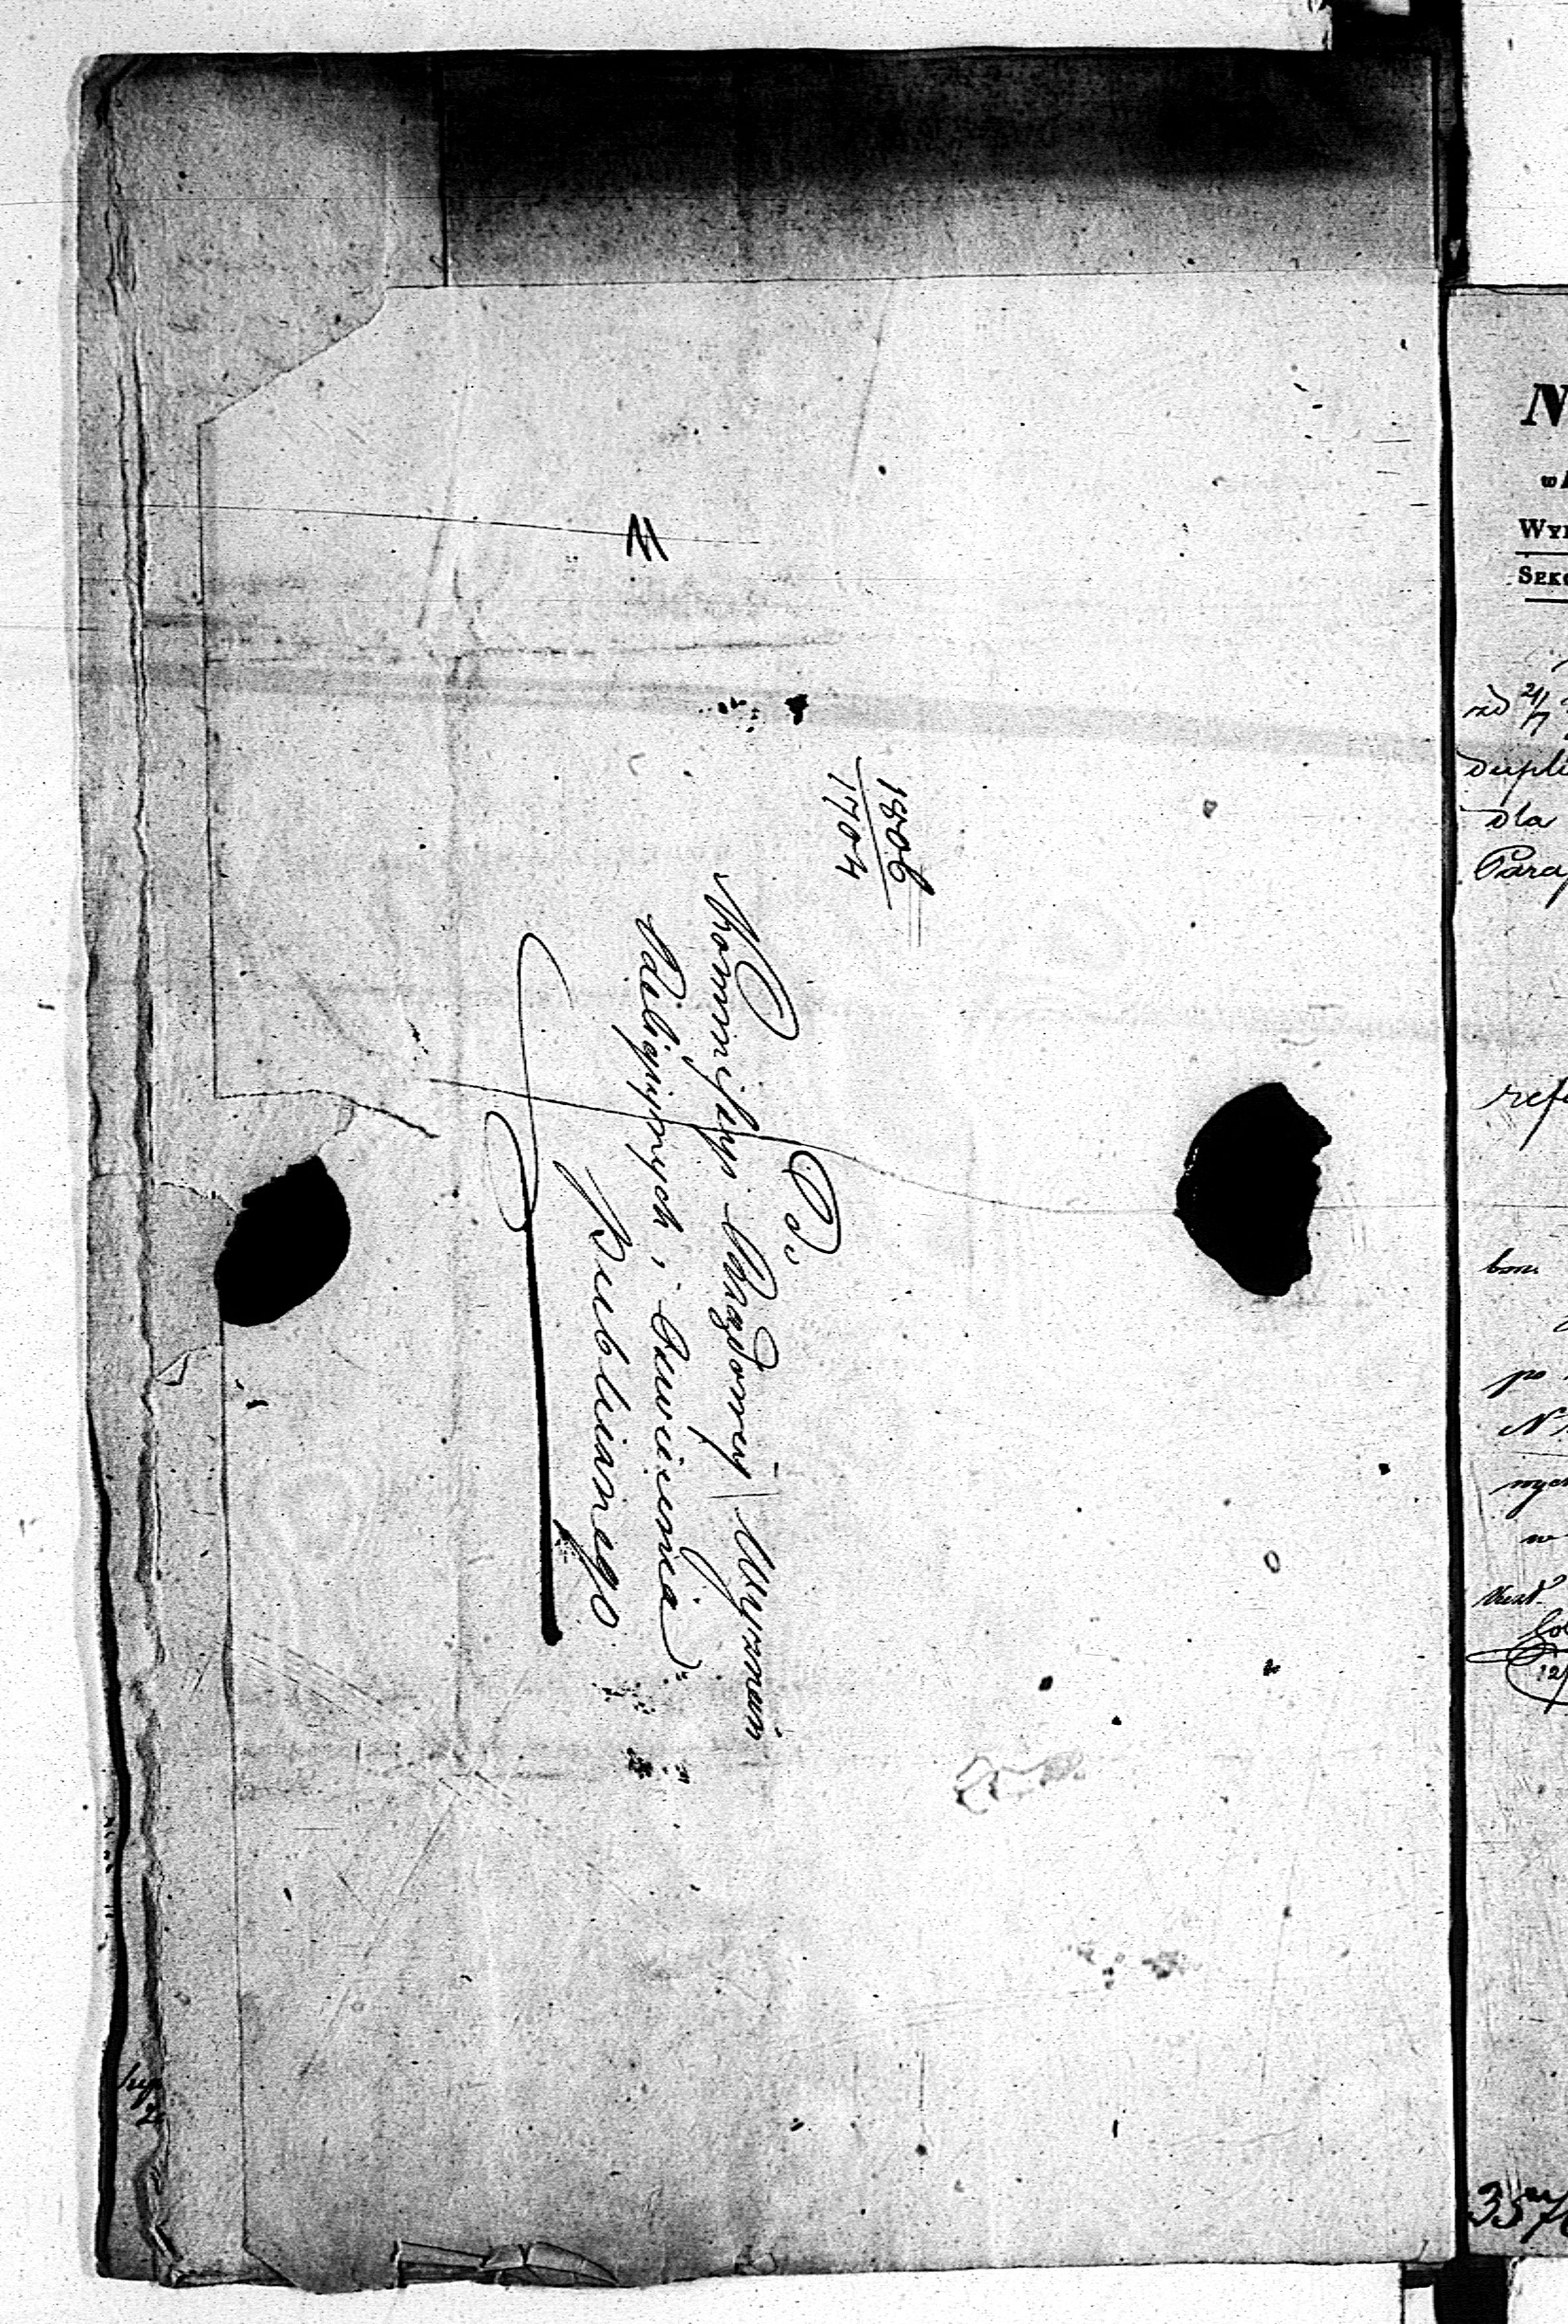 1806
1704
Do
Kommissyi Rządowey Wyznań
Religiynych, i Oświecenia
Publicznego
N
Wy
Sek
dupli
dla
Para
ref
po
N
w